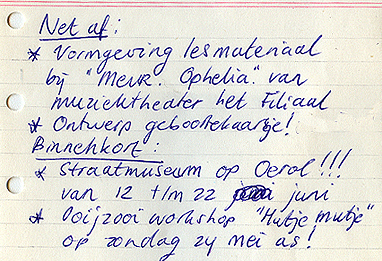 Net af:
* Vormgeving lesmateriaal
bij "Mevr. Ophelia" van
muziektheater het Filiaal
* Ontwerp geboortekaartje!
Binnenkort:
* Straatmuseum op Oerol!!!
van 12 t/m 22 juni
* Ooijzooi workshop "Hutje mutje"
op zondag 24 mei as!